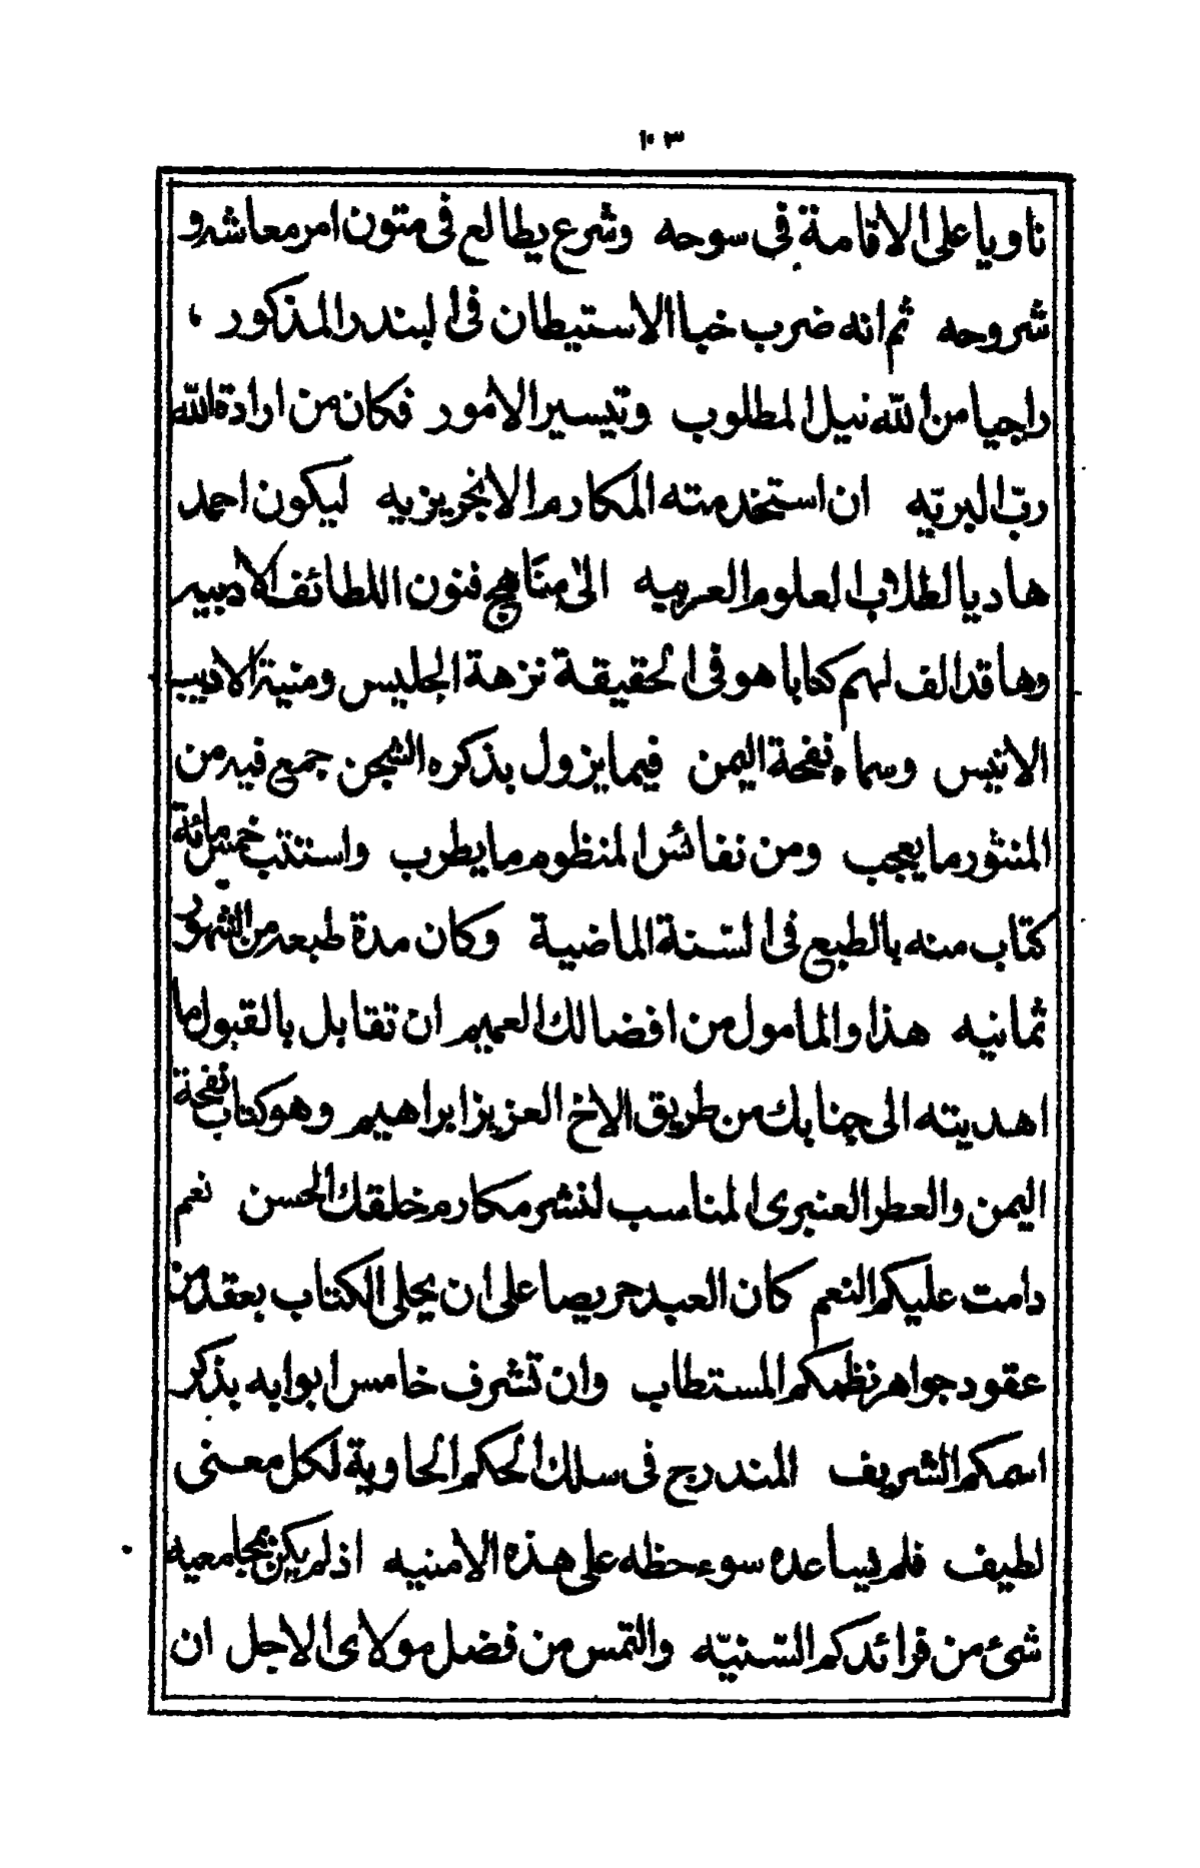 ١٠٣
ناويا على الاقامة في سوحه وشرع يطالع في متون امر معاشه و
شروحه ثم انه ضرب خبا الاستيطان في البندر المذكور ،
راجيا من الله نيل المطلوب وتيسير الامور فكان من ارادة الله
ربّ البريّه ان استخدمته المكارم الانجريزيه ليكون احمد
هاديا لطلاب العلوم العربيه الى مناهج فنون اللطائف الادبيه
وها قد الف لهم كتابا هو في الحقيقة نزهة الجليس ومنية الاديب
الانيس وسماه نفحة اليمن فيما يزول بذكره الشجن جمع فيه من
المنثور ما يعجب ومن نفائس المنظوم ما يطرب واستتب خمس مائة
كتاب منه بالطبع في السّنة الماضية وكان مدة طبعه من الشهور
ثمانيه هذا والمامول من افضالك العميم ان تقابل بالقبول ما
اهديته الى جنابك من طريق الاخ العزيز ابراهيم وهو كتاب نفحة
اليمن والعطر العنبرى المناسب لنشر مكارم خلقك الحسن نعم
دامت عليكم النعم كان العبد حريصا على ان يحلى الكتاب بعقد من
عقود جواهر نظمكم المستطاب وان تشرف خامس ابوابه بذكر
اسمكم الشريف المندرج فى سلك الحكم الحاوية لكل معنى
لطيف فلم يساعده سوء حظه على هذه الامنيه اذ لم يكن بمجامعيه
شئ من فرائدكم السّنيّه والتمس من فضل مولاى الاجل ان